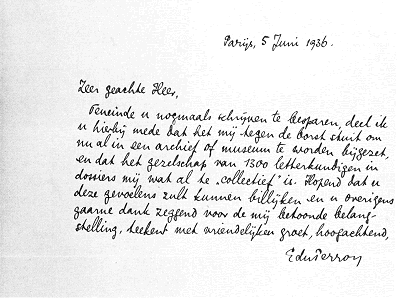 Parijs, 5 Juni 1936.
Zeer geachte Heer,
Teneinde u nogmaals schrijven te besparen, deel ik
u hierbij mede dat het mij tegen de borst stuit om
nu al in een archief of museum te worden bijgezet,
en dat het gezelschap van 1300 letterkundigen in
dossiers mij wat al te „collectief" is. Hopend dat u
deze gevoelens zult kunnen billijken en u overigens
gaarne dank zeggend voor de mij betoonde belang-
stelling, teekent met vriendelijken groet, hoogachtend,
EduPerron